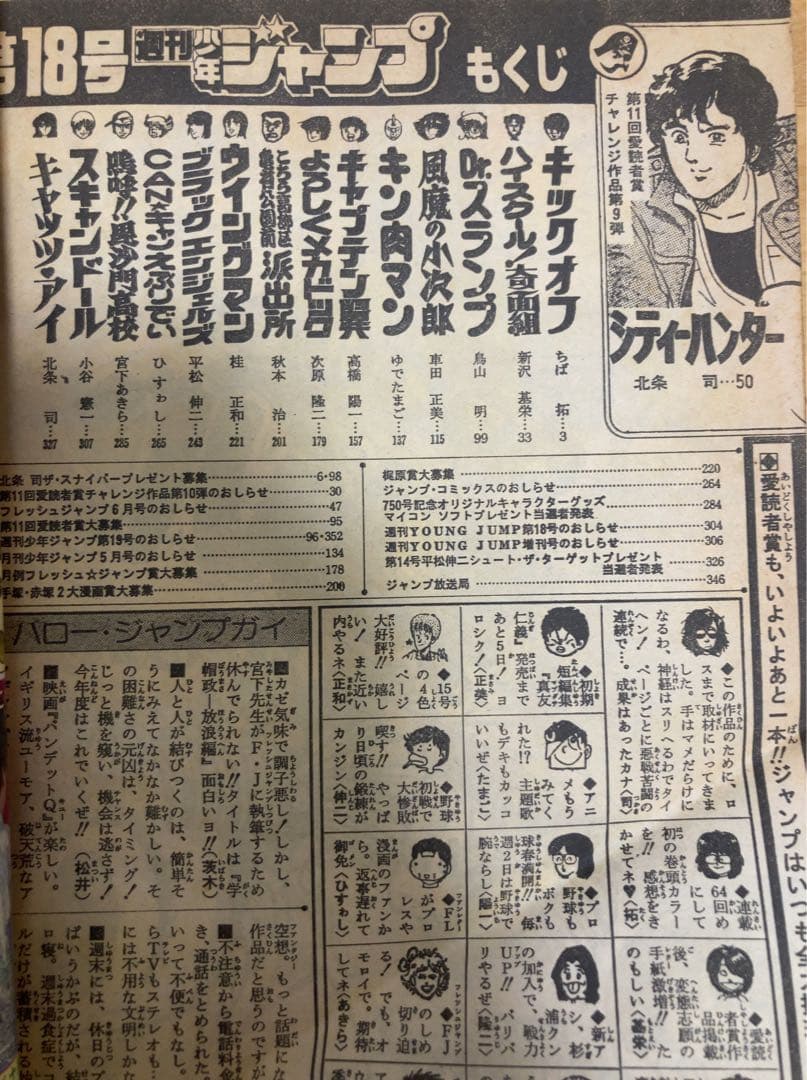 第18号 週刊少年ジャンプ もくじ
第11回愛読者賞
チャレンジ作品第9弾
シティーハンター
北条 司…50
キックオフ ちば 拓…3
ハイスクール!奇面組 新沢 基栄…33
Dr.スランプ 鳥山 明…99
風魔の小次郎 車田 正美…115
キン肉マン ゆでたまご…137
キャプテン翼 高橋 陽一…157
よろしくメカドック 次原 隆二…179
こちら葛飾区亀有公園前派出所 秋本 治…201
ウイングマン 桂 正和…221
ブラック・エンジェルズ 平松 伸二…243
CANキャンえぶりでい ひすゎし…265
嗚呼!!毘沙門高校 宮下あきら…285
スキャンドール 小谷 憲一…307
キャッツ・アイ 北条 司…327
北条 司ザ・スナイパープレゼント募集……6・98
第11回愛読者賞チャレンジ作品第10弾のおしらせ……30
フレッシュジャンプ6月号のおしらせ……47
第11回愛読者賞大募集……95
週刊少年ジャンプ第19号のおしらせ……96・352
月刊少年ジャンプ5月号のおしらせ……134
月例フレッシュ☆ジャンプ賞大募集……178
手塚・赤塚2大漫画賞大募集……200
梶原賞大募集……220
ジャンプ・コミックスのおしらせ……264
750号記念オリジナルキャラクターグッズ……284
マイコン ソフトプレゼント当選者発表
週刊YOUNG JUMP第18号のおしらせ……304
週刊YOUNG JUMP増刊号のおしらせ……306
第14号平松伸二シュート・ザ・ターゲットプレゼント
当選者発表……326
ジャンプ放送局……346
◆愛読者賞も、いよいよあと一本!!ジャンプはいつも全
◆この作品のために、ロ
スまで取材にいってきま
した。手はマメだらけに
なるわ、神経はスリへるわでタイ
ヘン!ページごとに悪戦苦闘の
連続で…。成果はあったカナ〈司〉
◆初期
短編集
『真友
仁義』発売まで
あと5日!ヨ
ロシク!〈正美〉
◆15号
の4色
ページ
大好評!!嬉し
い!また近い
内やるネ〈正和〉
◆連載
64回め
にして
初の巻頭カラー
を!!感想をき
かせてネ♥〈拓〉
◆アニ
メもう
みてく
れた!?主題歌
もデキもカッコ
いいぜ〈たまご〉
◆野球
初戦で
大惨敗
喫す!!やっぱ
り日頃の鍛練が
カンジン〈伸二〉
◆愛読
者賞作
品掲載
後、変態志願の
手紙激増!!た
のもしい〈基栄〉
◆プロ
野球も
ボクも
球春満開!!毎
週2日は野球で
腕ならし〈陽一〉
◆FL
がプロ
レスや
漫画のファンか
ら。返事遅れて
御免〈ひすゎし〉
◆新ア
シ、杉
浦クン
の加入で、戦力
UP!!バリバ
リやるぜ〈隆二〉
◆FJ
のしめ
切り迫
る!でも、オ
モロイで。期待
してネ〈あきら〉
ハロー・ジャンプガイ
■カゼ気味で調子悪し!しかし、
宮下先生がF・Jに執筆するため
休んでられない!!タイトルは『学
帽政―放浪編』面白いヨ!!〈茨木〉
■人と人が結びつくのは、簡単そ
うにみえてなかなか難かしい。そ
の困難さの元凶は、タイミング!
じっと機を窺い、機会は逃さず!
今年度はこれでいくぜ!!〈松井〉
■映画『バンデットQ』が楽しい。
イギリス流ユーモア、破天荒なア
空想。もっと話題にな
作品だと思うのですが
■不注意から電話料金
き、通話をとめられた。
いって不便でもなし。
らTVもステレオも…
には不用な文明しかな
■週末には、休日のプ
ぱいうかぶのだが、結
ロ寝。週末過食症でコ
ルだけが蓄積される